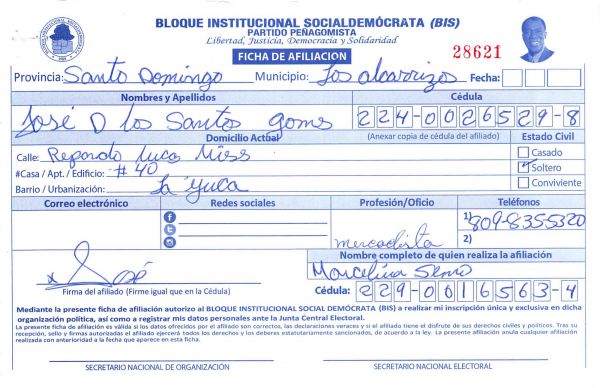 BLOQUE INSTITUCIONAL SOCIALDEMÓCRATA (BIS)
PARTIDO PEÑAGOMISTA
Libertad, Justicia, Democracia y Solidaridad
FICHA DE AFILIACIÓN
28621
Provincia: Santo Domingo Municipio: Los alcarrizos Fecha:
Nombres y Apellidos Cédula
José D los Santos gomes 224-0026529-8
Domicilio Actual (Anexar copia de cédula del afiliado) Estado Civil
Calle: Repardo luca Miss Casado
#Casa / Apt. / Edificio: # 40 Soltero
Barrio / Urbanización: La yuca Conviviente
Correo electrónico Redes sociales Profesión/Oficio Teléfonos
1) 809-835-5320
mercadista 2)
Nombre completo de quien realiza la afiliación
x José Marcelina
Firma del afiliado (Firme igual que en la Cédula) Cédula: 229-0016563-4
Mediante la presente ficha de afiliación autorizo al BLOQUE INSTITUCIONAL SOCIAL DEMÓCRATA (BIS) a realizar mi inscripción única y exclusiva en dicha
organización política, así como a registrar mis datos personales ante la Junta Central Electoral.
La presente ficha de afiliación es válida si los datos ofrecidos por el afiliado son correctos, las declaraciones veraces y si el afiliado tiene el disfrute de sus derechos civiles y políticos. Tras su
recepción, sello y firmas autorizadas el afiliado ejercerá todos los derechos y los deberes estatutariamente sancionados, de acuerdo a la ley. La presente afiliación anula cualquier afiliación
realizada con anterioridad a la fecha que aparece en esta ficha.
SECRETARIO NACIONAL DE ORGANIZACIÓN SECRETARIO NACIONAL ELECTORAL